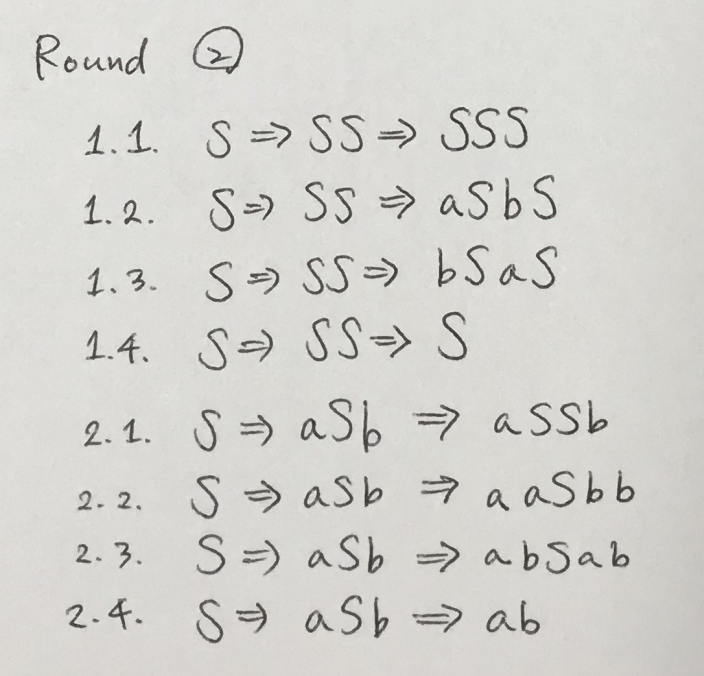 Round ②
1.1. S ⇒ SS ⇒ SSS
1.2. S ⇒ SS ⇒ aSbS
1.3. S ⇒ SS ⇒ bSaS
1.4. S ⇒ SS ⇒ S
2.1. S ⇒ aSb ⇒ aSSb
2.2. S ⇒ aSb ⇒ aaSbb
2.3. S ⇒ aSb ⇒ abSab
2.4. S ⇒ aSb ⇒ ab